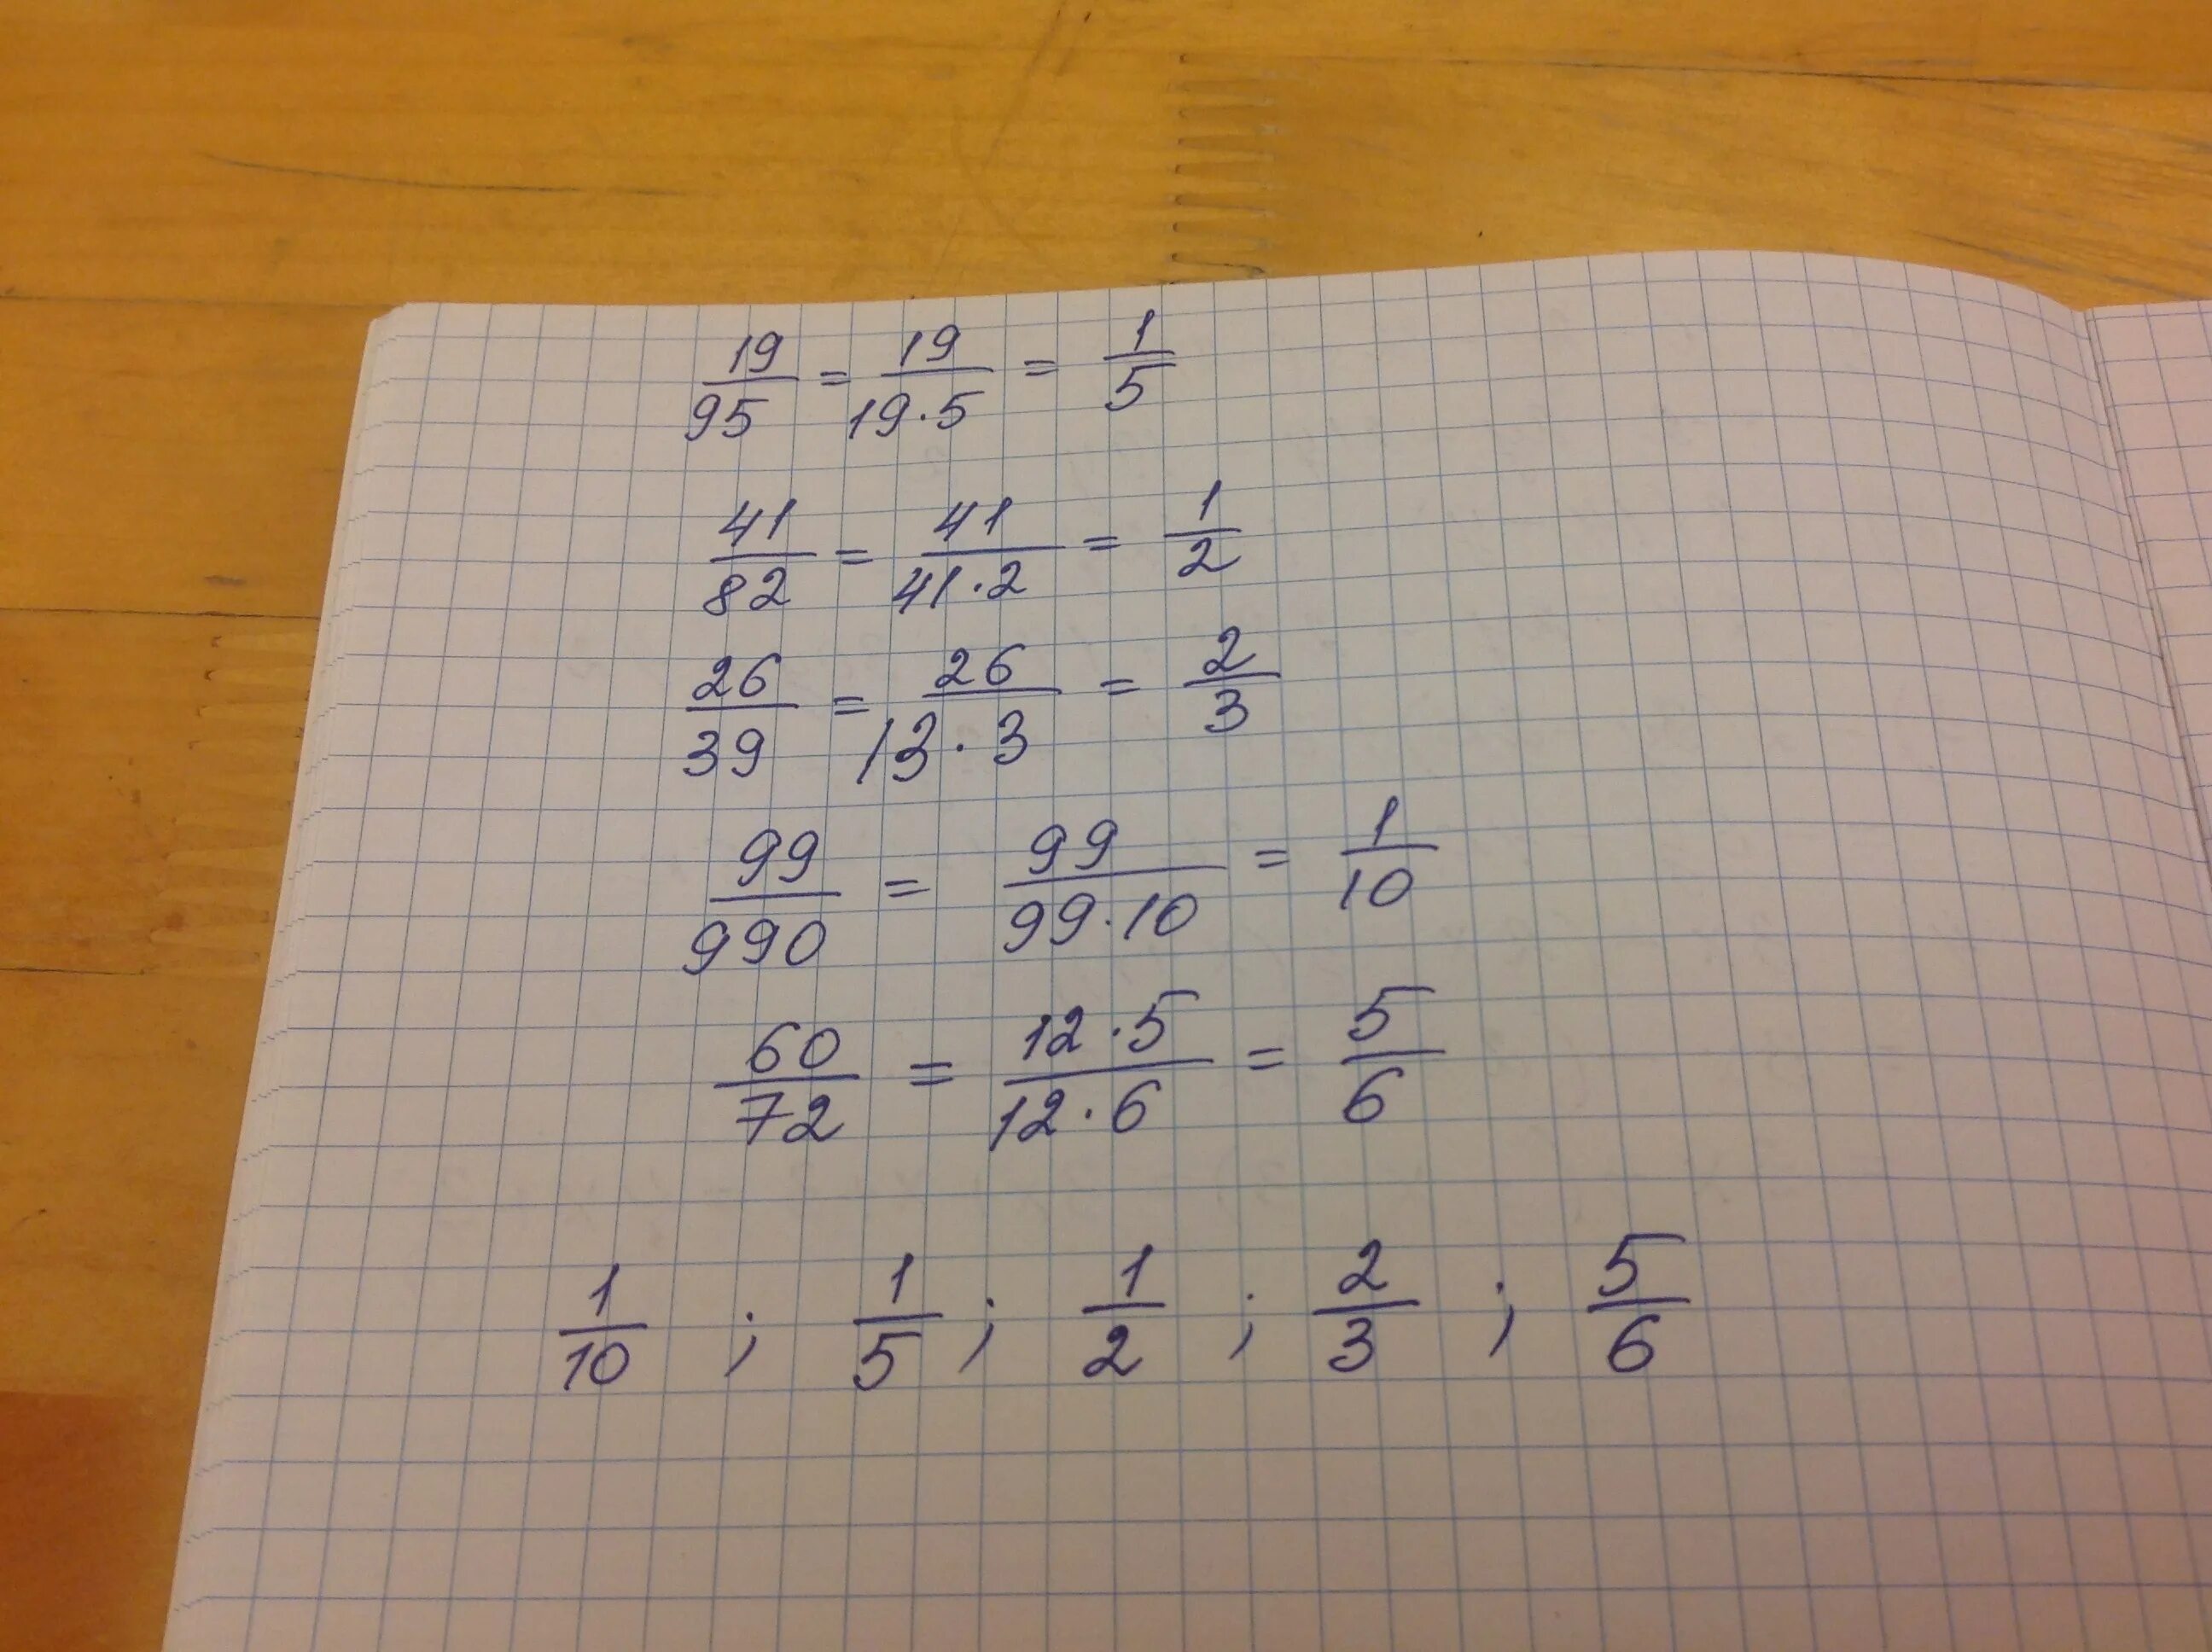 19/95 = 19/19·5 = 1/5
41/82 = 41/41·2 = 1/2
26/39 = 26/13·3 = 2/3
99/990 = 99/99·10 = 1/10
60/72 = 12·5/12·6 = 5/6
1/10 ; 1/5 ; 1/2 ; 2/3 ; 5/6